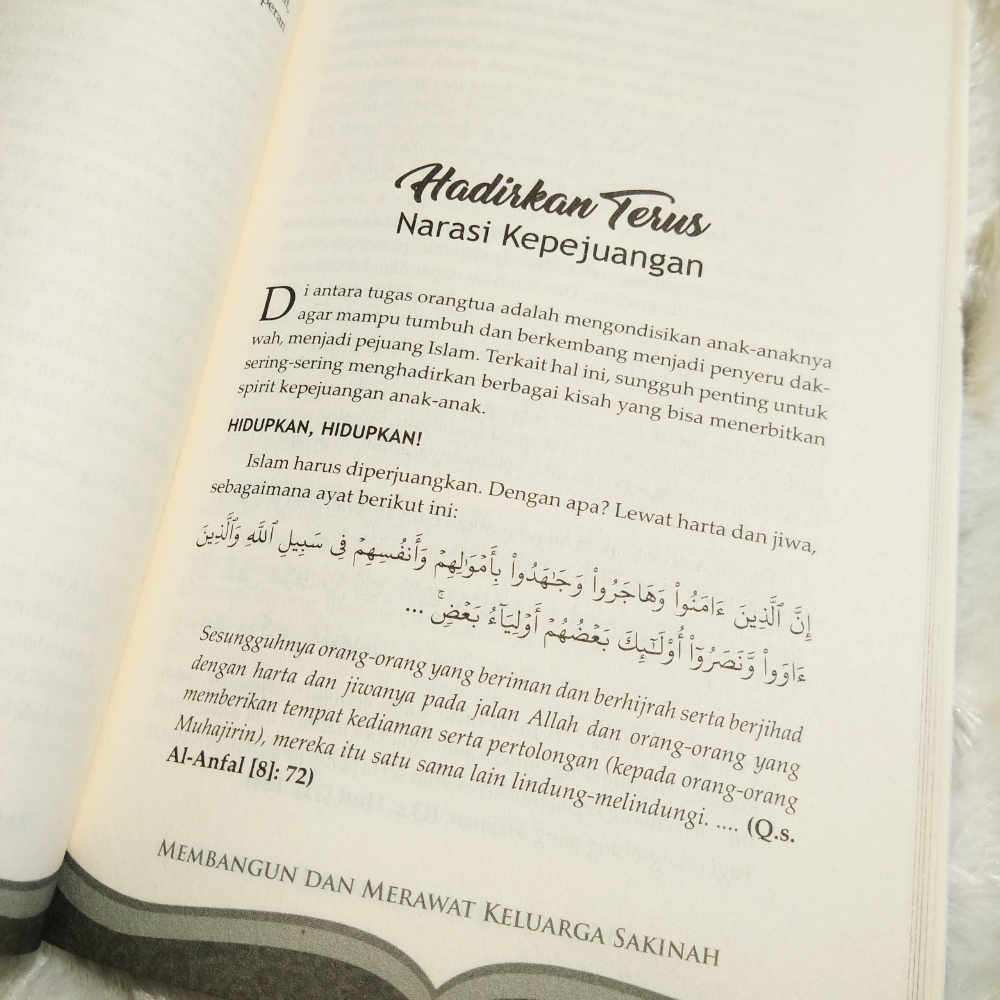 peran
Hadirkan Terus
Narasi Kepejuangan
Di antara tugas orangtua adalah mengondisikan anak-anaknya
agar mampu tumbuh dan berkembang menjadi penyeru dak-
wah, menjadi pejuang Islam. Terkait hal ini, sungguh penting untuk
sering-sering menghadirkan berbagai kisah yang bisa menerbitkan
spirit kepejuangan anak-anak.
HIDUPKAN, HIDUPKAN!
Islam harus diperjuangkan. Dengan apa? Lewat harta dan jiwa,
sebagaimana ayat berikut ini:
إِنَّ ٱلَّذِينَ ءَامَنُوا۟ وَهَاجَرُوا۟ وَجَـٰهَدُوا۟ بِأَمْوَٰلِهِمْ وَأَنفُسِهِمْ فِى سَبِيلِ ٱللَّهِ وَٱلَّذِينَ
ءَاوَوا۟ وَّنَصَرُوٓا۟ أُو۟لَـٰٓئِكَ بَعْضُهُمْ أَوْلِيَآءُ بَعْضٍ ۚ ...
Sesungguhnya orang-orang yang beriman dan berhijrah serta berjihad
dengan harta dan jiwanya pada jalan Allah dan orang-orang yang
memberikan tempat kediaman serta pertolongan (kepada orang-orang
Muhajirin), mereka itu satu sama lain lindung-melindungi. .... (Q.s.
Al-Anfal [8]: 72)
MEMBANGUN DAN MERAWAT KELUARGA SAKINAH